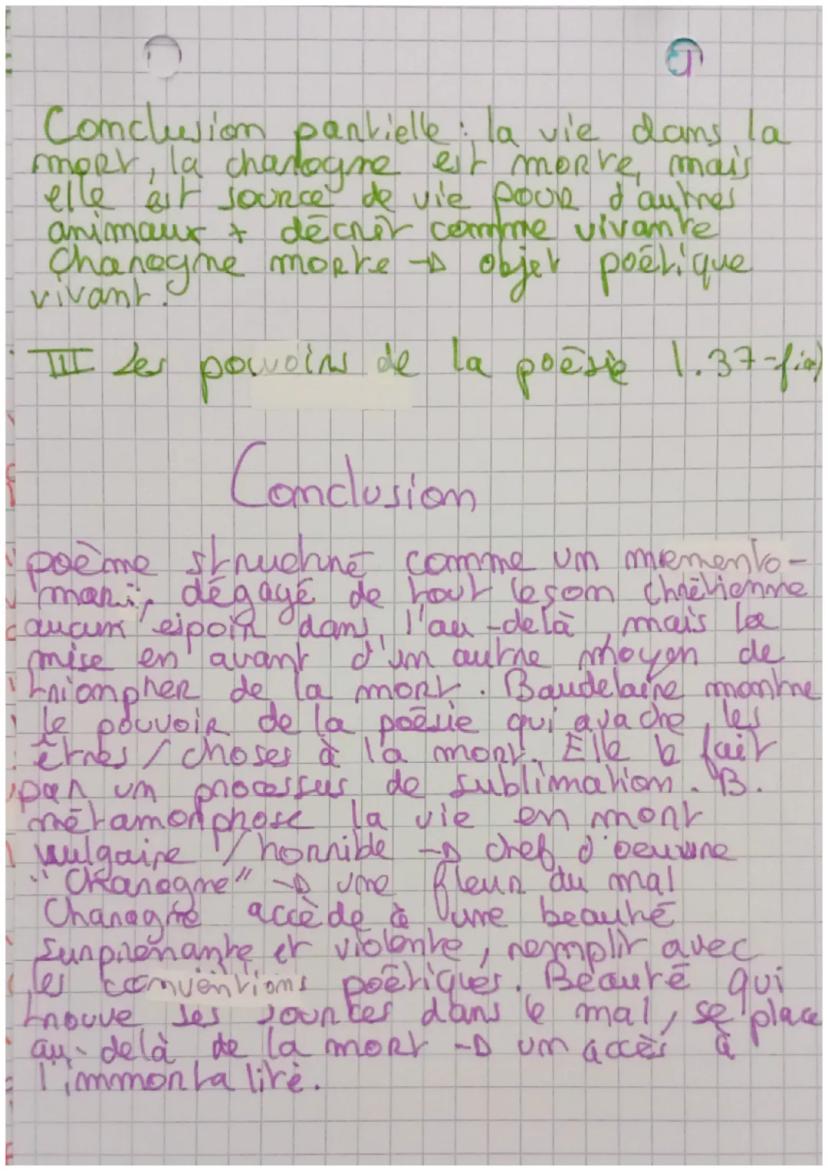 Conclusion partielle : la vie dans la
mort, la charogne est morte, mais
elle est source de vie pour d'autres
animaux + décrit comme vivante
Charogne morte → objet poétique
vivant.
III Les pouvoirs de la poésie l.37-fin)
Conclusion
poème structuré comme un memento-
mori, dégagé de tout leson chrétienne
aucun espoir dans l'au-delà mais la
mise en avant d'un autre moyen de
triompher de la mort. Baudelaire montre
le pouvoir de la poésie qui arache les
êtres / choses à la mort. Elle le fait
par un processus de sublimation. B.
métamorphose la vie en mort
vulgaire / horrible → chef d'oeuvre
"Charogne" → une fleur du mal
Charogne accède à une beauté
surprenante et violente, remplit avec
les conventions poétiques. Beauté qui
trouve ses sources dans le mal, se place
au-delà de la mort → un accès à
l'immortalité.